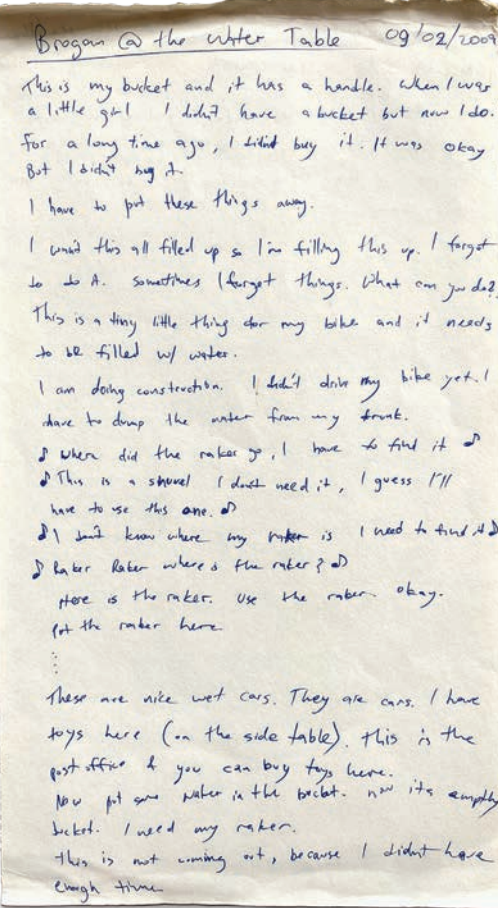 Brogan @ the Water Table 09/02/2009
This is my bucket and it has a handle. When I was
a little girl I didn't have a bucket but now I do.
for a long time ago, I didn't buy it. It was okay
But I didn't buy it.
I have to put these things away.
I want this all filled up so I'm filling this up. I forgot
to do it. sometimes I forget things. What can you do?
This is a tiny little thing for my bike and it needs
to be filled w/ water.
I am doing construction. I didn't drive my bike yet. I
have to dump the water from my trunk.
♪ where did the raker go, I have to find it ♪
♪ This is a shuvel I don't need it, I guess I'll
have to use this one. ♪
♪ I don't know where my raker is I need to find it ♪
♪ Raker Raker where's the raker? ♪
Here is the raker. Use the raker. okay.
Put the raker here.
These are nice wet cars. They are cars. I have
toys here (on the side table). This is the
post office & you can buy toys here.
Now put some water in the bucket. now its empthy
bucket. I need my raker.
this is not coming out, because I didn't have
enough time